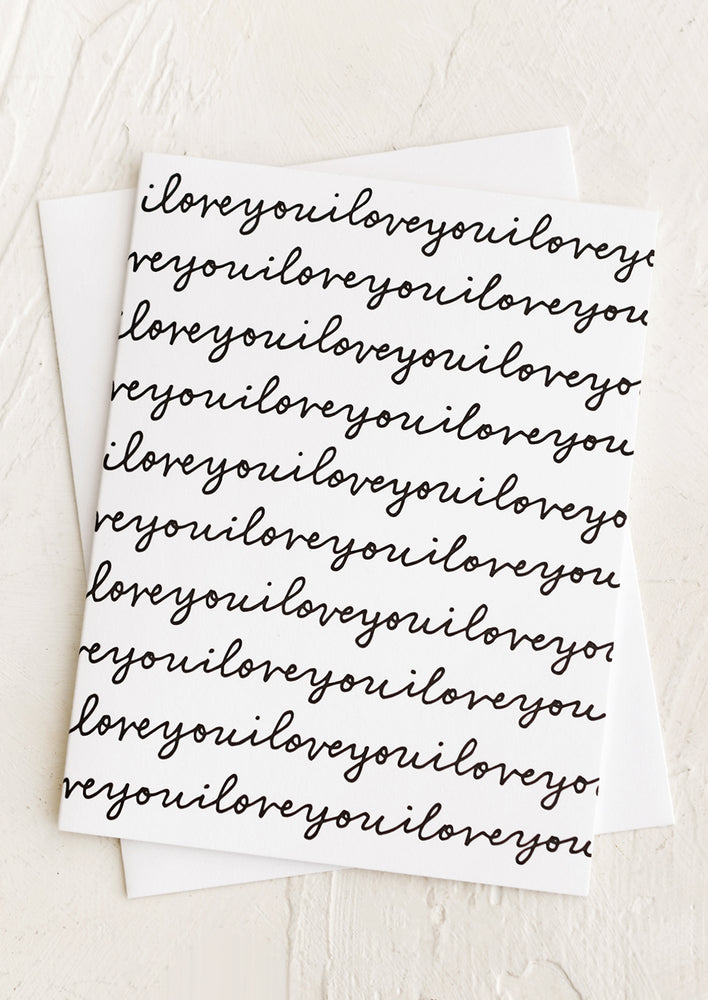 iloveyouiloveyouiloveyo
veyouiloveyouiloveyou
iloveyouiloveyouiloveyo
veyouiloveyouiloveyou
iloveyouiloveyouiloveyo
veyouiloveyouiloveyou
loveyouiloveyouiloveyou
veyouiloveyouiloveyou
loveyouiloveyouiloveyou
veyouiloveyouiloveyou